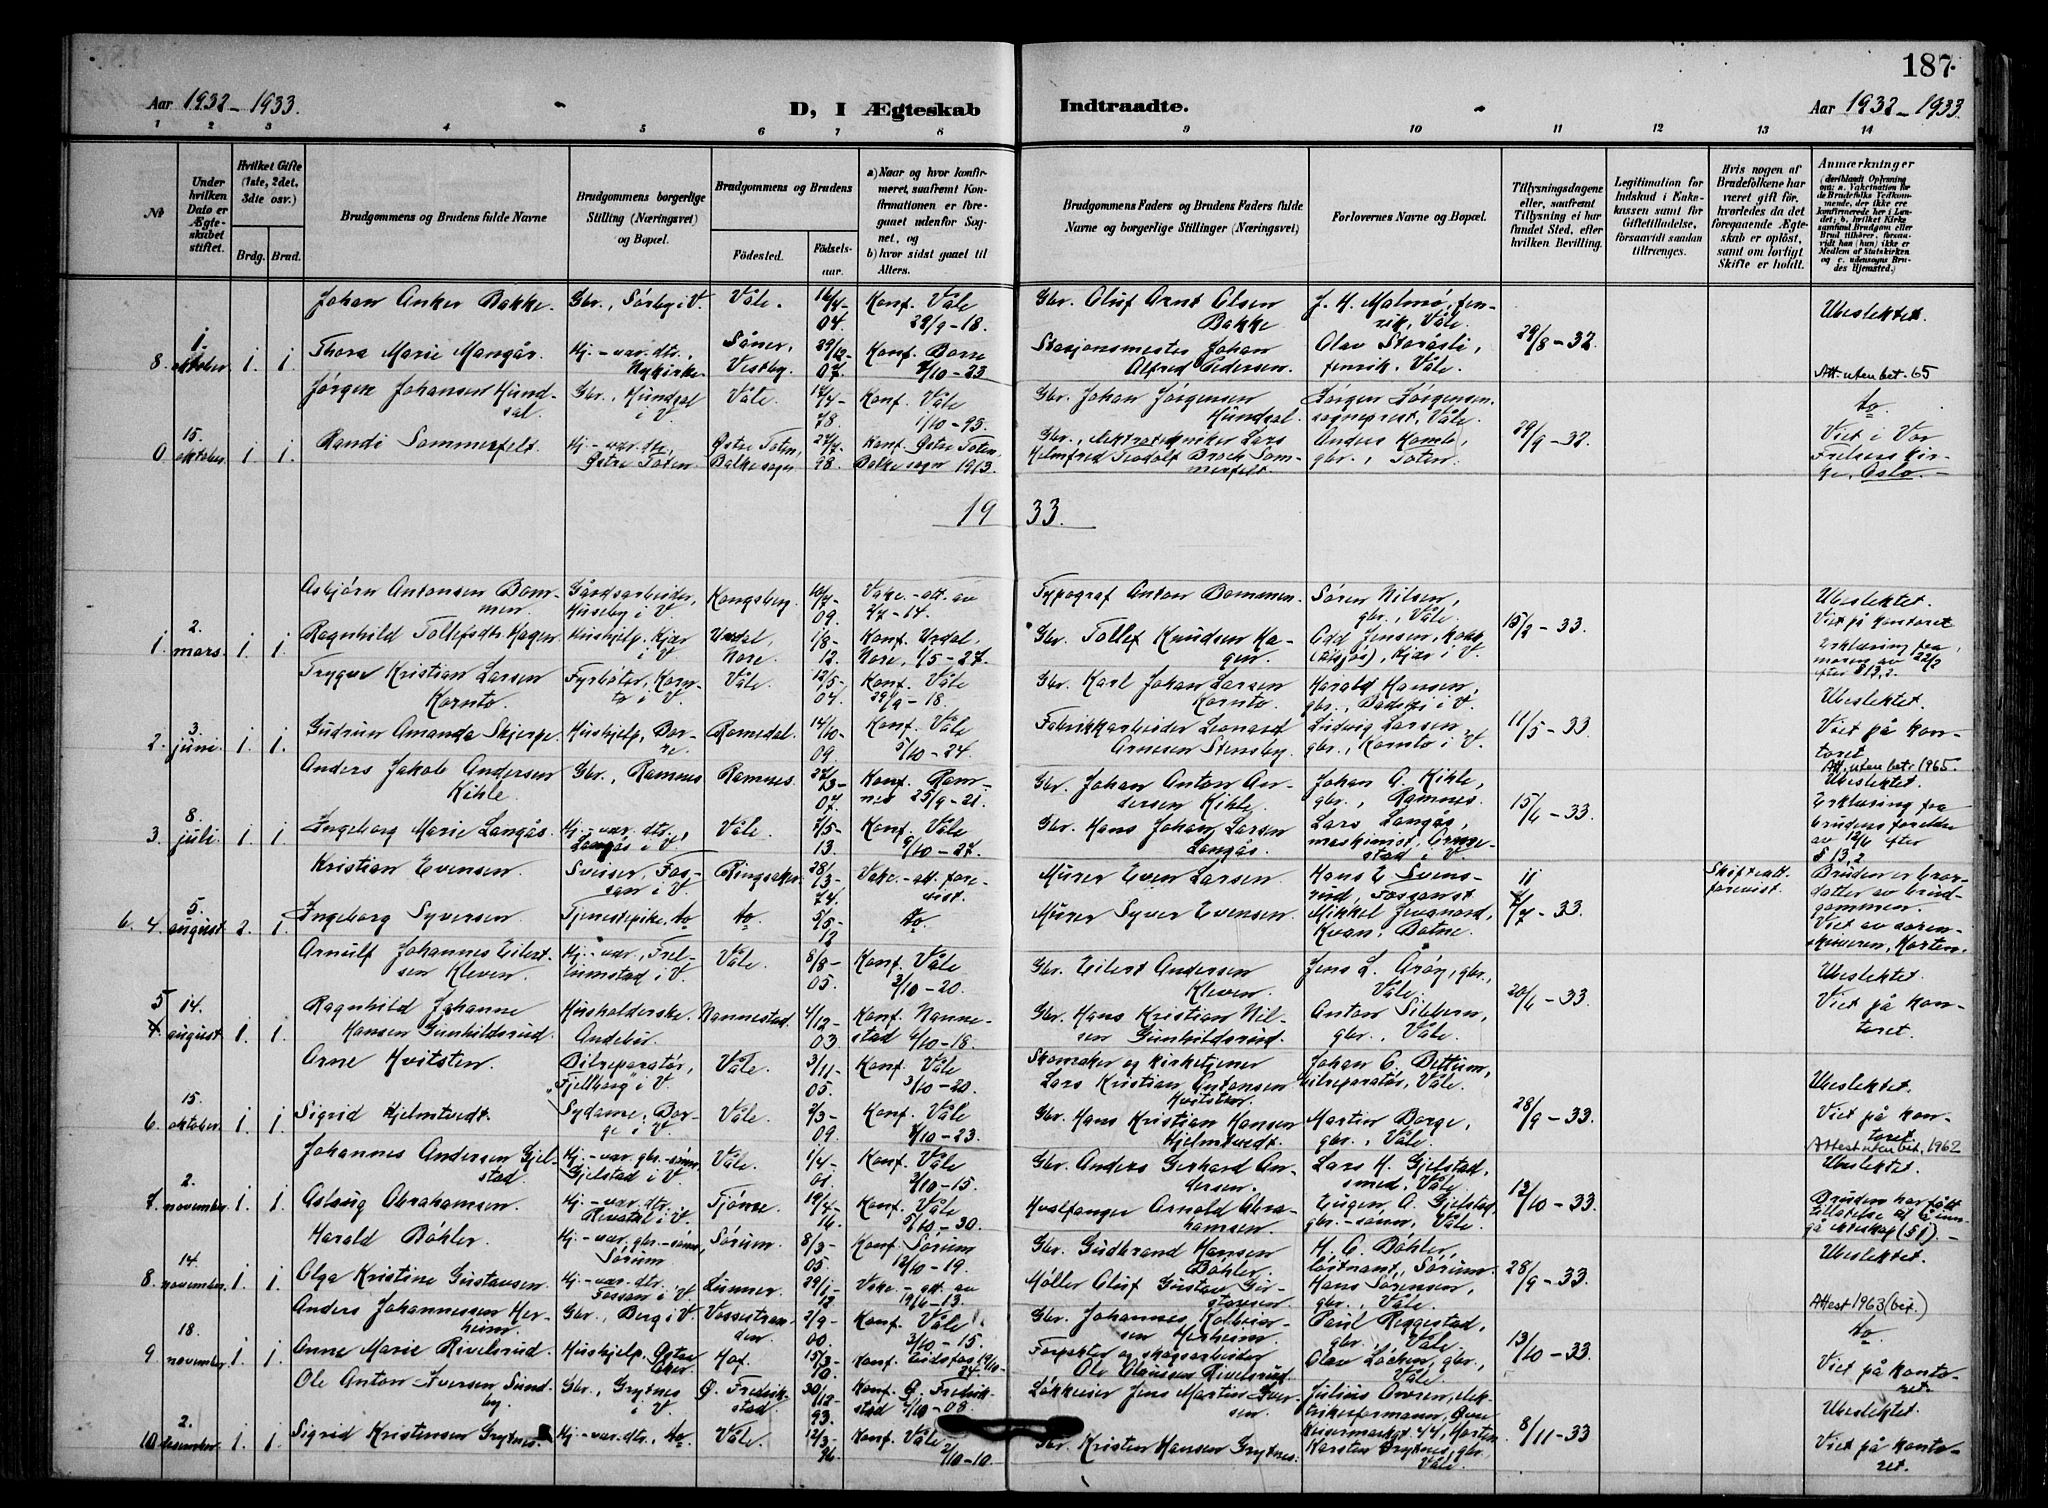 187.
Aar 1932-1933. D, I Ægteskab Indtraadte. Aar 1932-1933
1 2 3 4 5 6 7 8 9 10 11 12 13 14
Nr
Under hvilken Dato er Ægteskabet stiftet.
Hvilket Gifte (1ste, 2det, 3dte osv.)
Brdg. Brud.
Brudgommens og Brudens fulde Navne
Brudgommens borgerlige Stilling (Næringsvei) og Bopæl.
Brudgommens og Brudens
Födested. Födselsaar.
a) Naar og hvor konfirmeret, saafremt Konfirmationen er foregaaet udenfor Sognet, og
b) hvor sidst gaaet til Alters.
Brudgommens Faders og Brudens Faders fulde Navne og borgerlige Stillinger (Næringsvei)
Forlovernes Navne og Bopæl.
Tillysningsdagene eller, saafremt Tillysning ei har fundet Sted, efter hvilken Bevilling.
Legitimation for Indskud i Enkekassen samt for Giftetilladelse, forsaavidt saadan tiltrænges.
Hvis nogen af Brudefolkene har været gift før, hvorledes da det foregaaende Ægteskab er oplöst, samt om lovligt Skifte er holdt.
Anmærkninger
Johan Anker Bakke. Gbr., Sörby i V. Våle. 16/4-04. Konf. Våle 29/9-18. Gbr. Oluf Arnt Olsen Bakke J. H. Malmö, fenrik, Våle. Ubeslektet.
8. 1. oktober 1. 1. Thora Marie Mangår. Hj.-vær. dtr., Nykirke. Såner, Vestby. 29/12-07. Konf. Borre 7/10-23 Stasjonsmester Johan Alfred Pedersen. Olav Storåsli, fenrik, Våle. 29/8-32. Att. uten bet. 65
Jörgen Johansen Hundsal. Gbr., Hundsal i V. Våle. 17/4-78. Konf. Våle 1/10-95. Gbr. Johan Jörgensen Hundsal. Jörgen Jörgensen, sogneprest, Våle. do.
0 15. oktober. 1. 1. Randi Sommerfelt. Hj.-vær. dtr., Östre Toten. Östre Toten, Balke sogn 27/7-98. Konf. Östre Toten, Balke sogn 1913. Gbr., elektrotekniker Lars Helmfred Teodolf Broch Sommerfelt. Anders Homle, gbr., Toten. 29/9-32. Viet i Vor Frelsers kirke, Oslo.
1933.
Asbjörn Antonsen Bommen. Gårdsarbeider, Huseby i V. Kongsberg. 16/7-09. Vake.-att. av 2/7-14. Typograf Anton Bommen. Sören Nilsen, gbr., Våle. Ubeslektet.
1. 2. mars. 1. 1. Ragnhild Tollefsdtr. Hagen Hushjelp, Kjær i V. Uvdal, Nore. 1/8-12. Konf. Uvdal, Nore, 1/5-27. Gbr. Tollef Knudsen Hagen. Odd Jensen, Kjær i V. 15/2-33. Viet på kontoret Erklæring fra moren av 22/2 efter § 13, 2.
Trygve Kristian Larsen Kornto. Fyrböter, Kornto i V. Våle. 12/5-04. Konf. Våle 29/9-18. Gbr. Karl Johan Larsen Kornto. Harald Hansen, gbr., Bådski i V. Ubeslektet.
2. 3. juni. 1. 1. Gudrun Amanda Skjerpe. Hushjelp, Borre. Romedal. 14/10-09 Konf. Våle 5/10-24. Fabrikkarbeider Leonard Arnesen Stensby. Ludvig Larsen, gbr., Kornto i V. 11/5-33. Viet på kontoret. Att. uten bet. 1965.
Anders Jakob Andersen Kihle. Gbr., Ramnes Ramnes. 27/3-07. Konf. Ramnes 25/9-21. Gbr. Johan Anton Andersen Kihle. Johan A. Kihle, gbr., Ramnes. Ubeslektet.
3. 8. juli. 1. 1. Ingeborg Marie Langås. Hj.-vær. dtr., Langås i V. Våle. 7/5-13. Konf. Våle 9/10-27. Gbr. Hans Johan Larsen Langås. Lars Langås, maskinist, i V. 15/6-33. Erklæring fra brudens foreldre av 12/6 efter § 13, 2
Kristian Evensen. Sveiser, Fossan i V. Ringsaker. 28/3-74. Vake.-att. forevist. Murer Even Larsen. Hans E. Svensrud, Fossan st. Skifteatt. forevist. Bruden er brordatter av brudgommen.
6. 4. 5. august. 2. 1. Ingeborg Syversen. Tjenestepike, do. do. 5/5-12 do. Murer Syver Evensen. Mikkel Kvan, Botne. 11 7/7-33. Viet av sorenskriveren, Horten.
Arnulf Johannes Eilertsen Kleven. Hj.-vær., Freberumstad i V. Våle. 8/8-05. Konf. Våle 3/10-20. Gbr. Eilert Andersen Kleven. Jens L. Aröy, gbr., Våle. Ubeslektet.
5 14. august 1. 1. Ragnhild Johanne Hansen Gunhildsrud. Husholderske, Andebu. Nannestad. 4/12-03 Konf. Nannestad 6/10-18. Gbr. Hans Kristian Nilsen Gunhildsrud. Anton Sibbern, gbr., Våle. 20/6-33. Viet på kontoret.
Arne Hvitsten. Bilreparatör, "Fjellborg" i V. Våle. 3/11-05. Konf. Våle 3/10-20. Skomaker og kirketjener Lars Kristian Antonsen Hvitsten. Johan C. Bettum, bilreparatör, Våle. Ubeslektet.
6. 15. oktober. 1. 1. Sigrid Hjelmtvedt. Sydame, Borge i V. Våle. 2/3-09. Konf. Våle 7/10-23. Gbr. Hans Kristian Hansen Hjelmtvedt. Martin Borge, gbr., Våle. 28/9-33. Viet på kontoret. Attest uten bet. 1962
Johannes Andersen Gjelstad. Hj.-vær. gbr.-sönn, Gjelstad i V. Våle. 1/4-01. Konf. Våle 3/10-15. Gbr. Anders Gerhard Andersen. Lars H. Gjelstad, smed, Våle. Ubeslektet.
7. 2. november. 1. 1. Aslaug Abrahamsen. Hj.-vær. dtr., Revetal i V. Tjöme. 19/4-16. Konf. Våle 5/10-30. Hvalfanger Arnold Abrahamsen. Eugen A. Gjelstad, gbr.-sönn, Våle. 12/10-33. Bruden har fått tillatelse til å inngå ekteskap (§ 1).
Harald Böhler. Hj.-vær. gbr.-sönn, Sörum Sörum. 8/3-05. Konf. Sörum 12/10-19. Gbr. Gudbrand Hansen Böhler. H. C. Böhler, löitnant, Sörum. Ubeslektet.
8. 14. november. 1. 1. Olga Kristine Gustavsen. Hj.-vær. dtr. Fossan i V. Lunner. 29/1-12 Vake.-att. av 19/6-13. Möller Oluf Gustav Gustavsen. Hans Sörensen, gbr., Våle. 28/9-33. Attest 1963 (bet.)
Anders Johannessen Herheim. Gbr., Berg i V. Vossestranden. 2/9-00. Konf. Våle 3/10-15. Gbr. Johannes Kolbeinsen Herheim. Paul Reggestad, gbr. Våle. do.
9 18. november 1. 1. Anne Marie Revelsrud. Hushjelp, Hof. 15/3-10. Konf. Eidsfos 19/10-24. Forpakter og skogsarbeider Ole Olaussen Revelsrud. Olav Löcken, gbr., Våle. 13/10-33. Viet på kontoret.
Ole Anton Iversen Sundby. Gbr., Grytnes i V. Ö. Fredrikstad. 30/12-93. Konf. Ö. Fredrikstad 4/10-08. Jens Martin Iversen. Julius elektrikerformann, Övre Keisermarkgt. 44, Horten Ubeslektet.
10 2. desember. 1. 1. Sigrid Kristensen Grytnes. Hj.-vær. dtr., do. Våle. 12/3-96. Konf. Våle 2/10-10. Gbr. Kristen Hansen Grytnes. Karsten Grytnes, gbr. Våle. 8/11-33 Viet på kontoret.